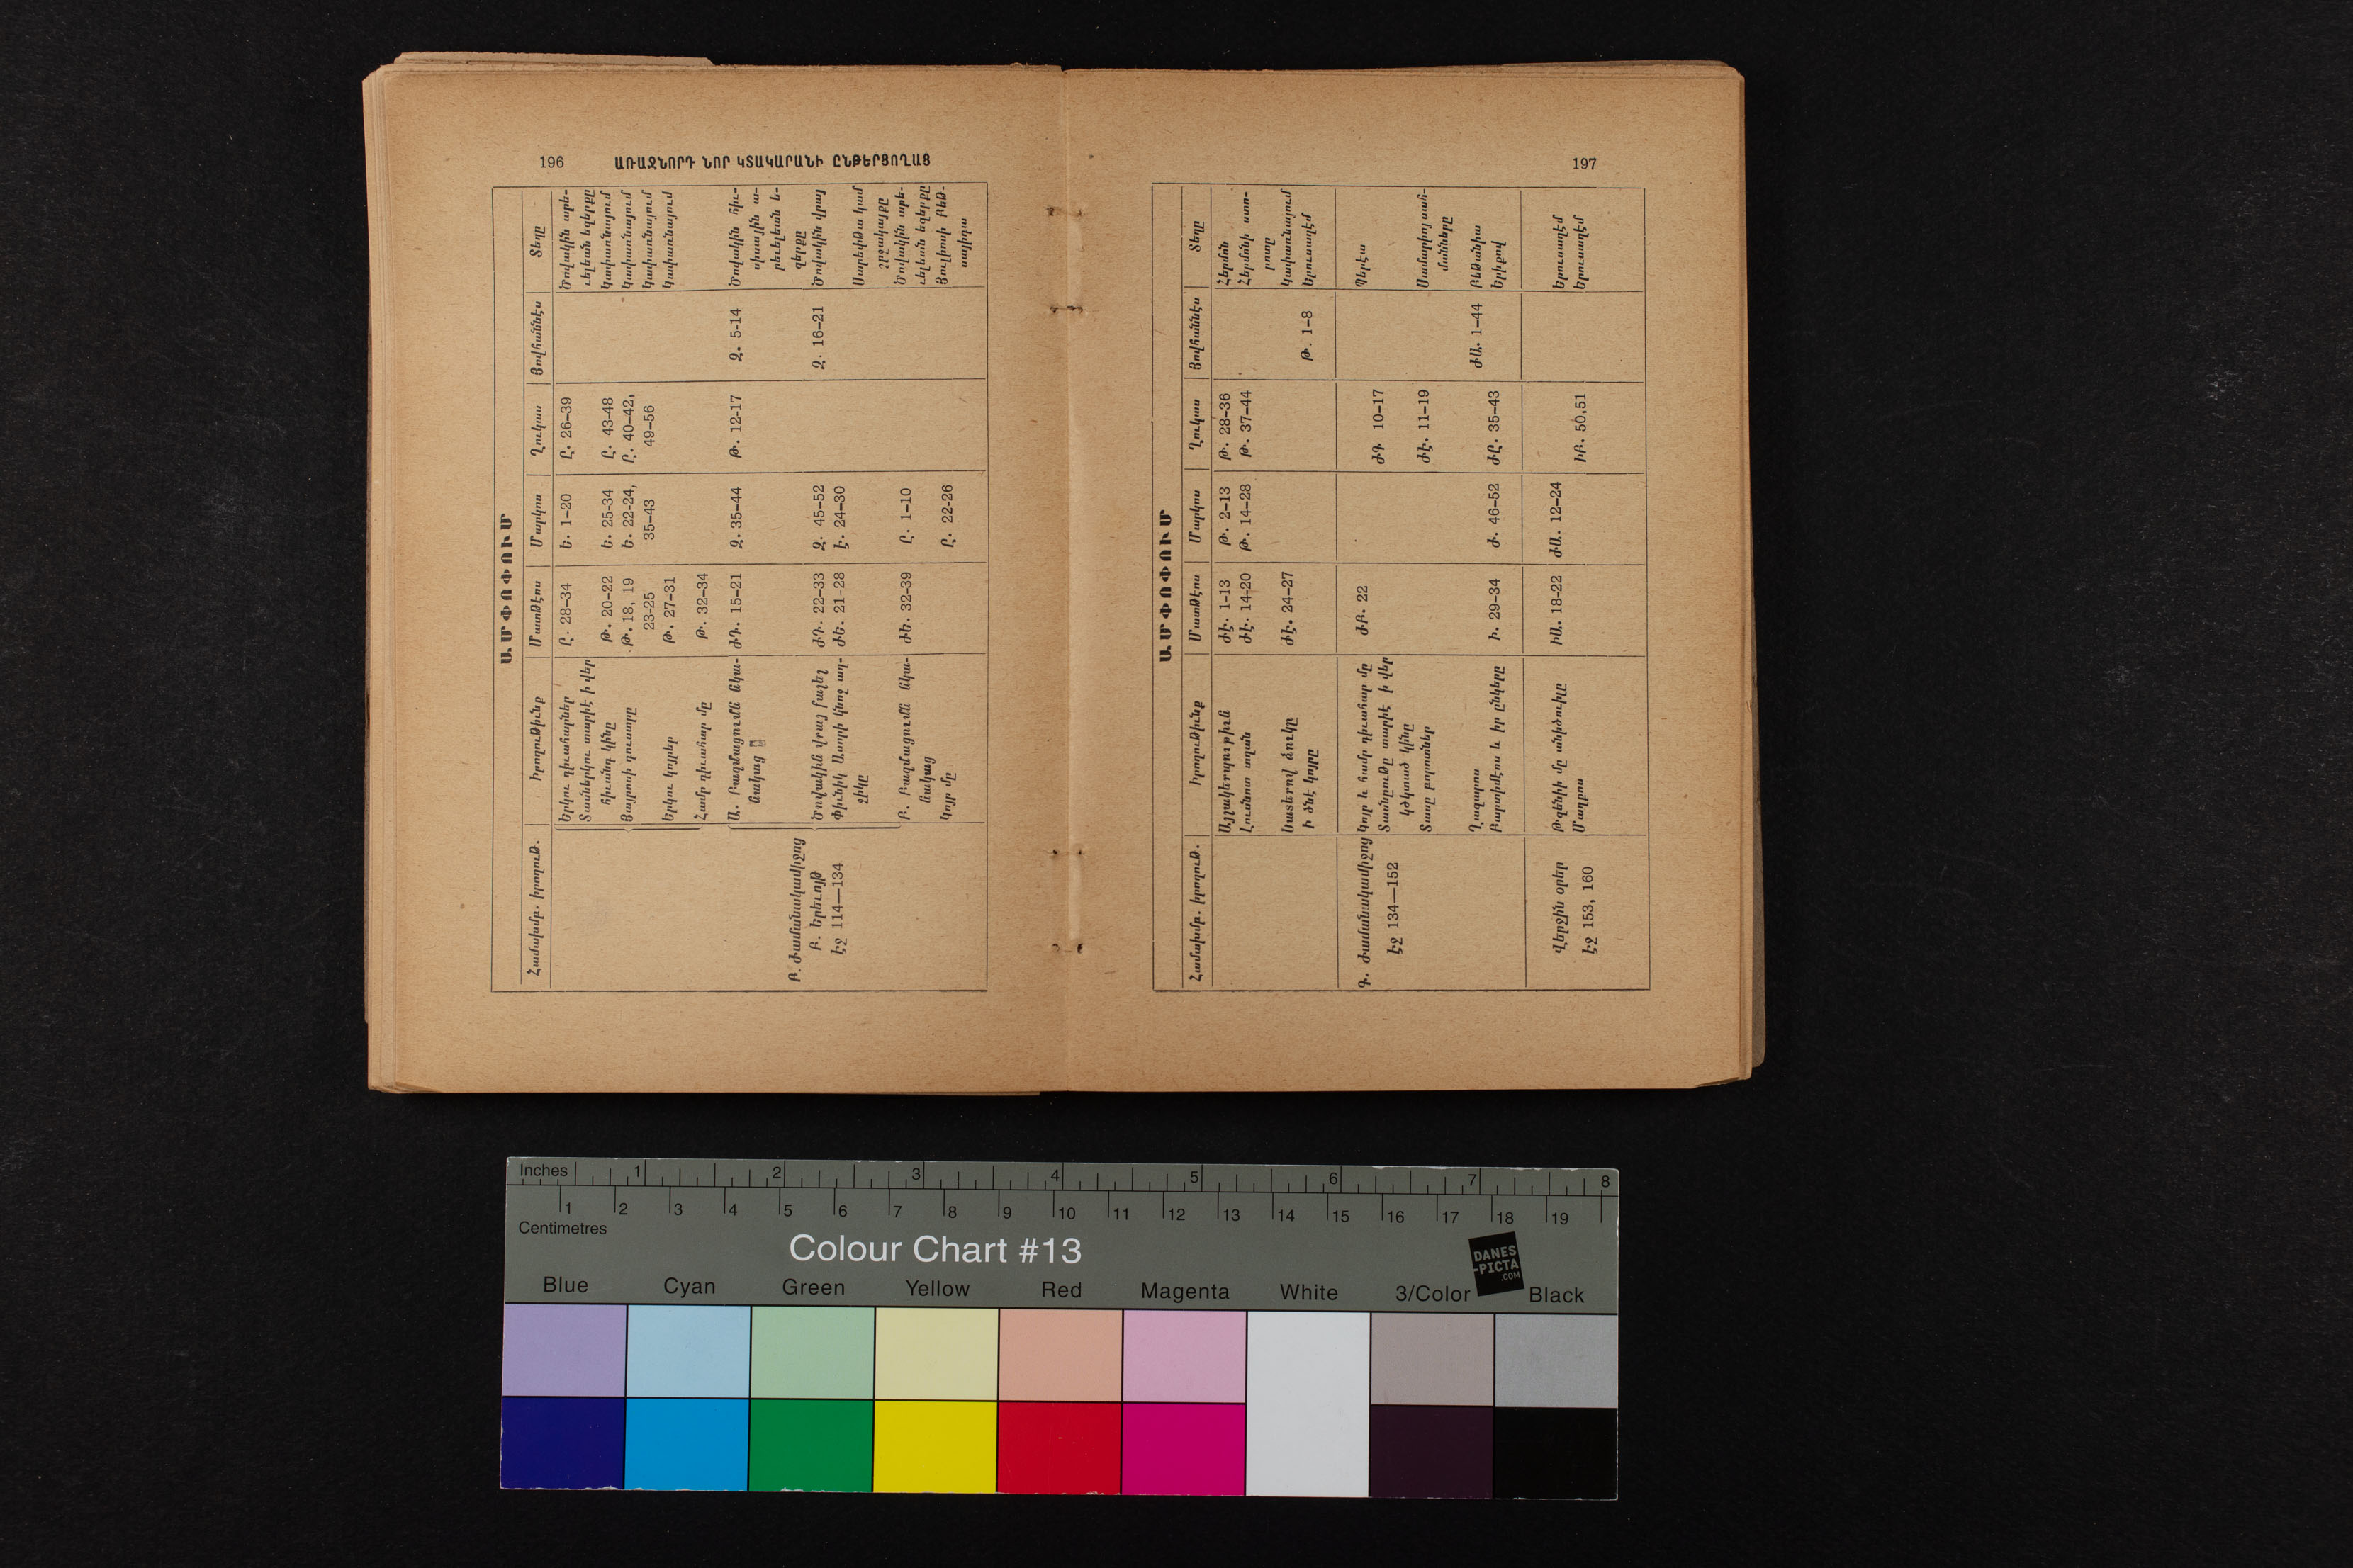 196 ԱՌԱՋՆՈՐԴ ՆՈՐ ԿՏԱԿԱՐԱՆԻ ԸՆԹԵՐՑՈՂԱՑ
ԱՄՓՈՓՈՒՄ
Համախմբ. իրողութ. Իրողութիւնք Մատթէոս Մարկոս Ղուկաս Յովհաննէս Տեղը
Երկու դիւահարներ Ը. 28–34 Ե. 1–20 Ը. 26–39 Ծովակին արե-
Տասներկու տարիէ ի վեր ւելեան եզերքը
հիւանդ կինը Թ. 20–22 Ե. 25-34 Ը. 43-48 Կափառնայում
Յայրոսի դուստրը Թ. 18, 19 Ե. 22-24, Ը. 40–42, Կափառնայում
23-25 35–43 49–56 Կափառնայում
Երկու կոյրեր Թ. 27–31 Կափառնայում
Համր դիւահար մը Թ. 32–34
Ա. Բազմացումն նկա- ԺԴ. 15–21 Զ. 35–44 Թ. 12-17 Զ. 5-14 Ծովակին հիւ-
նակաց սիսային ա-
րեւելեան ե-
զերքը
Բ. Ժամանակամիջոց
Բ. Երեւոյթ
Էջ 114—134
Ծովակին վրայ քալել ԺԴ. 22–33 Զ. 45–52 Զ. 16–21 Ծովակին վրայ
Փիւնիկ Ասորի կնոջ աղ- ԺԵ. 21-28 Է. 24–30
ջիկը Սարեփթա կամ
շրջակայքը
Բ. Բազմացումն նկա- ԺԵ. 32-39 Ը. 1–10 Ծովակին արե-
նակաց ւելեան եզերքը
Կոյր մը Ը. 22-26 Յուլիոսի Բեթ-
սայիդա
197
ԱՄՓՈՓՈՒՄ
Համախմբ. իրողութ. Իրողութիւնք Մատթէոս Մարկոս Ղուկաս Յովհաննէս Տեղը
Այլակերպութիւն ԺԷ. 1-13 Թ. 2–13 Թ. 28–36 Հերմոն
Լուսնոտ տղան ԺԷ. 14-20 Թ. 14–28 Թ. 37–44 Հերմոնի ստո-
րոտը
Սատերով ձուկը ԺԷ. 24–27 Կափառնայում
Ի ծնէ կոյրը Թ. 1–8 Երուսաղէմ
Գ. Ժամանակամիջոց
Էջ 134—152
Կոյր և համր դիւահար մը ԺԲ. 22 Պերէա
Տասնութը տարիէ ի վեր ԺԳ 10–17
կծկտած կինը
Տասը բորոտներ ԺԷ. 11–19 Սամարիոյ սահ-
մանները
Ղազարոս ԺԱ. 1–44 Բեթանիա
Բարտիմէոս և իր ընկերը Ի. 29–34 Ժ. 46–52 ԺԸ. 35–43 Երիքով
Վերջին օրեր
Էջ 153, 160
Թզենիի մը անիծուիլը ԻԱ. 18-22 ԺԱ. 12–24 Երուսաղէմ
Մաղքոս ԻԲ. 50,51 Երուսաղէմ
Inches 1 2 3 4 5 6 7 8
1 2 3 4 5 6 7 8 9 10 11 12 13 14 15 16 17 18 19
Centimetres
Colour Chart #13
DANES
-PICTA
.COM
Blue Cyan Green Yellow Red Magenta White 3/Color Black